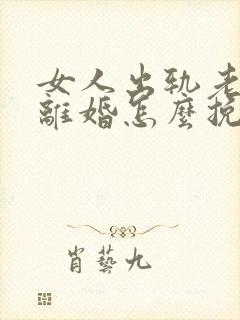 女人出轨老
離婚怎麼挽
肖藝九